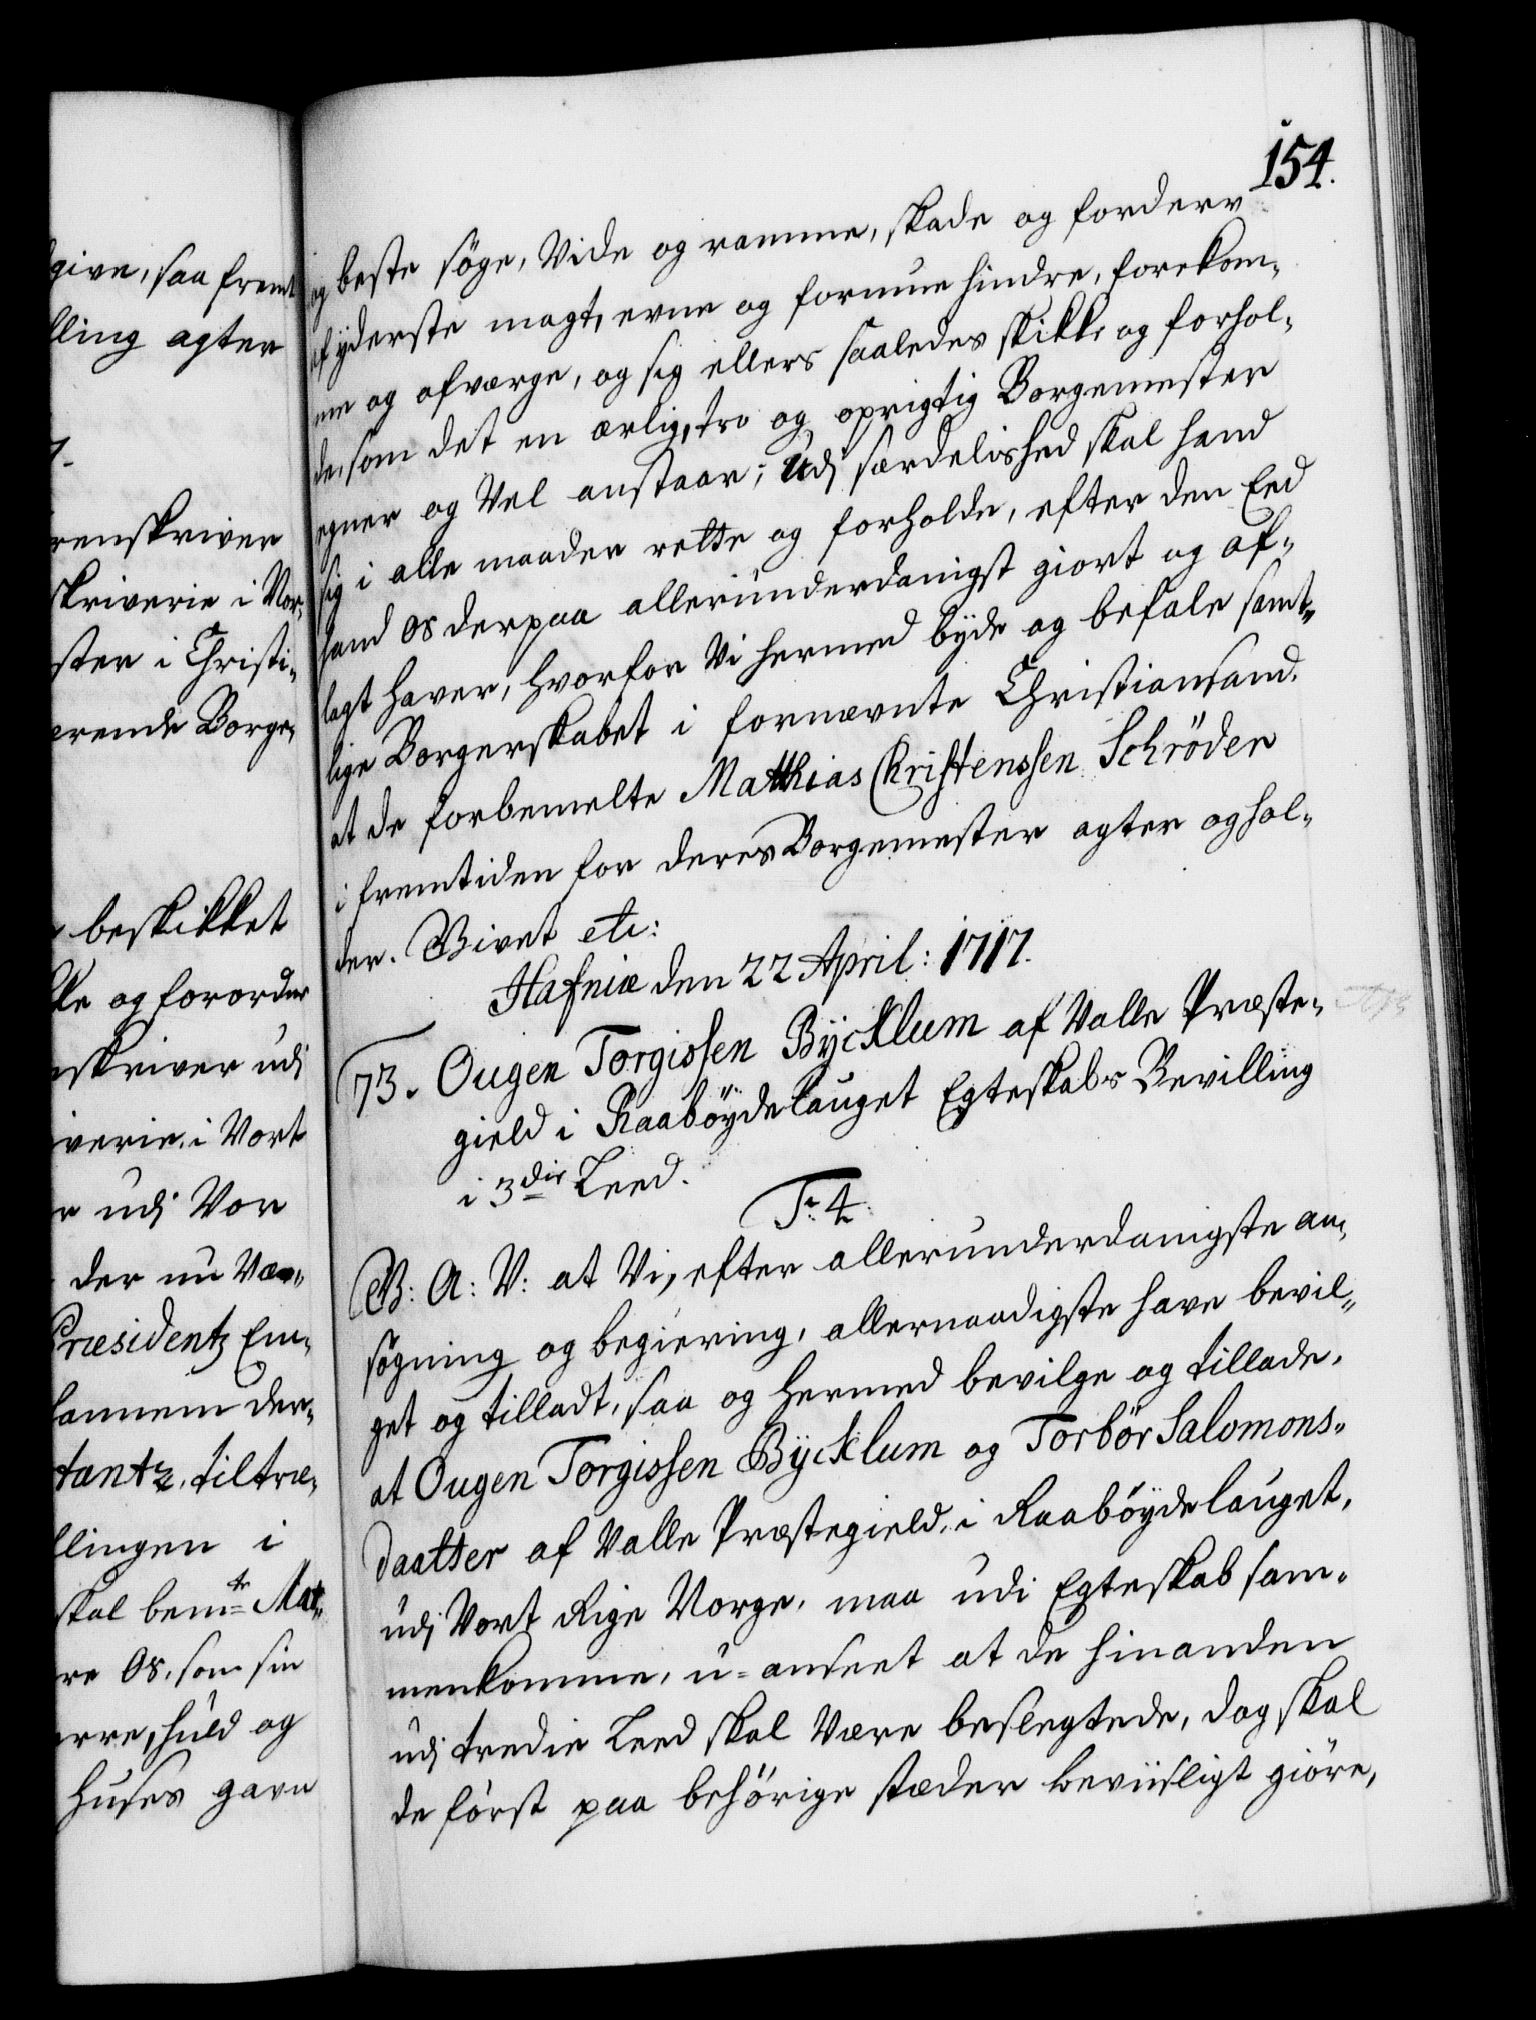 154.
og beste söge, Vide og ramme, skade og forderv
af yderste magt, evne og formue hindre, forekom-
me og afværge, og sig ellers saaledes skikke og forhol-
de, som det en ærlig, tro og oprigtig Borgemester
egner og Vel anstaar; Udj særdelished skal hand
sig i alle maader rette og forholde, efter den Eed
hand os derpaa allerunderdanigst giort og af-
lagt haver, hvorfor Vi hermed byde og befale samt-
lige Borgerskabet i fornævnte Christiansand.
at de forbemelte Matthias Christenssen Schröder
i fremtiden for deres Borgemester agter og hol-
der. Givet etc:
Hafniæ den 22 April: 1717.
73. Ougen Torgissen Bÿcklum af Valle Præste-
gield i Raabÿgdelauget Egteskabs Bevilling
i 3die Leed.
F: 4.
G: A: V: at Vi, efter allerunderdanigste an-
søgning og begiering, allernaadigste have bevil-
get og tilladt, saa og hermed bevilge og tillade,
at Ougen Torgissen Bÿcklum og Torbör Salomons-
daatter af Valle Præstegield, i Raabÿgdelauget,
udj Vort Rige Norge, maa udi Egteskab sam-
menkomme, u-anseet at de hinanden
udj tredie Leed skal Være beslegtede, dog skal
de först paa behörige stæder beviisligt giöre,
give, saa fremt
lling agter
renskriver
skriverie i Nor-
ster i Christi-
erende Borge-
beskikket
og forordne
skriver udj
iverie i Vort
r udj Vor
der nu Vær-
Præsidentz Em-
sammen der-
tantz, tiltræ-
llingen i
skal bemte Mat-
re Os, som sin
erre, huld og
Huses gavn